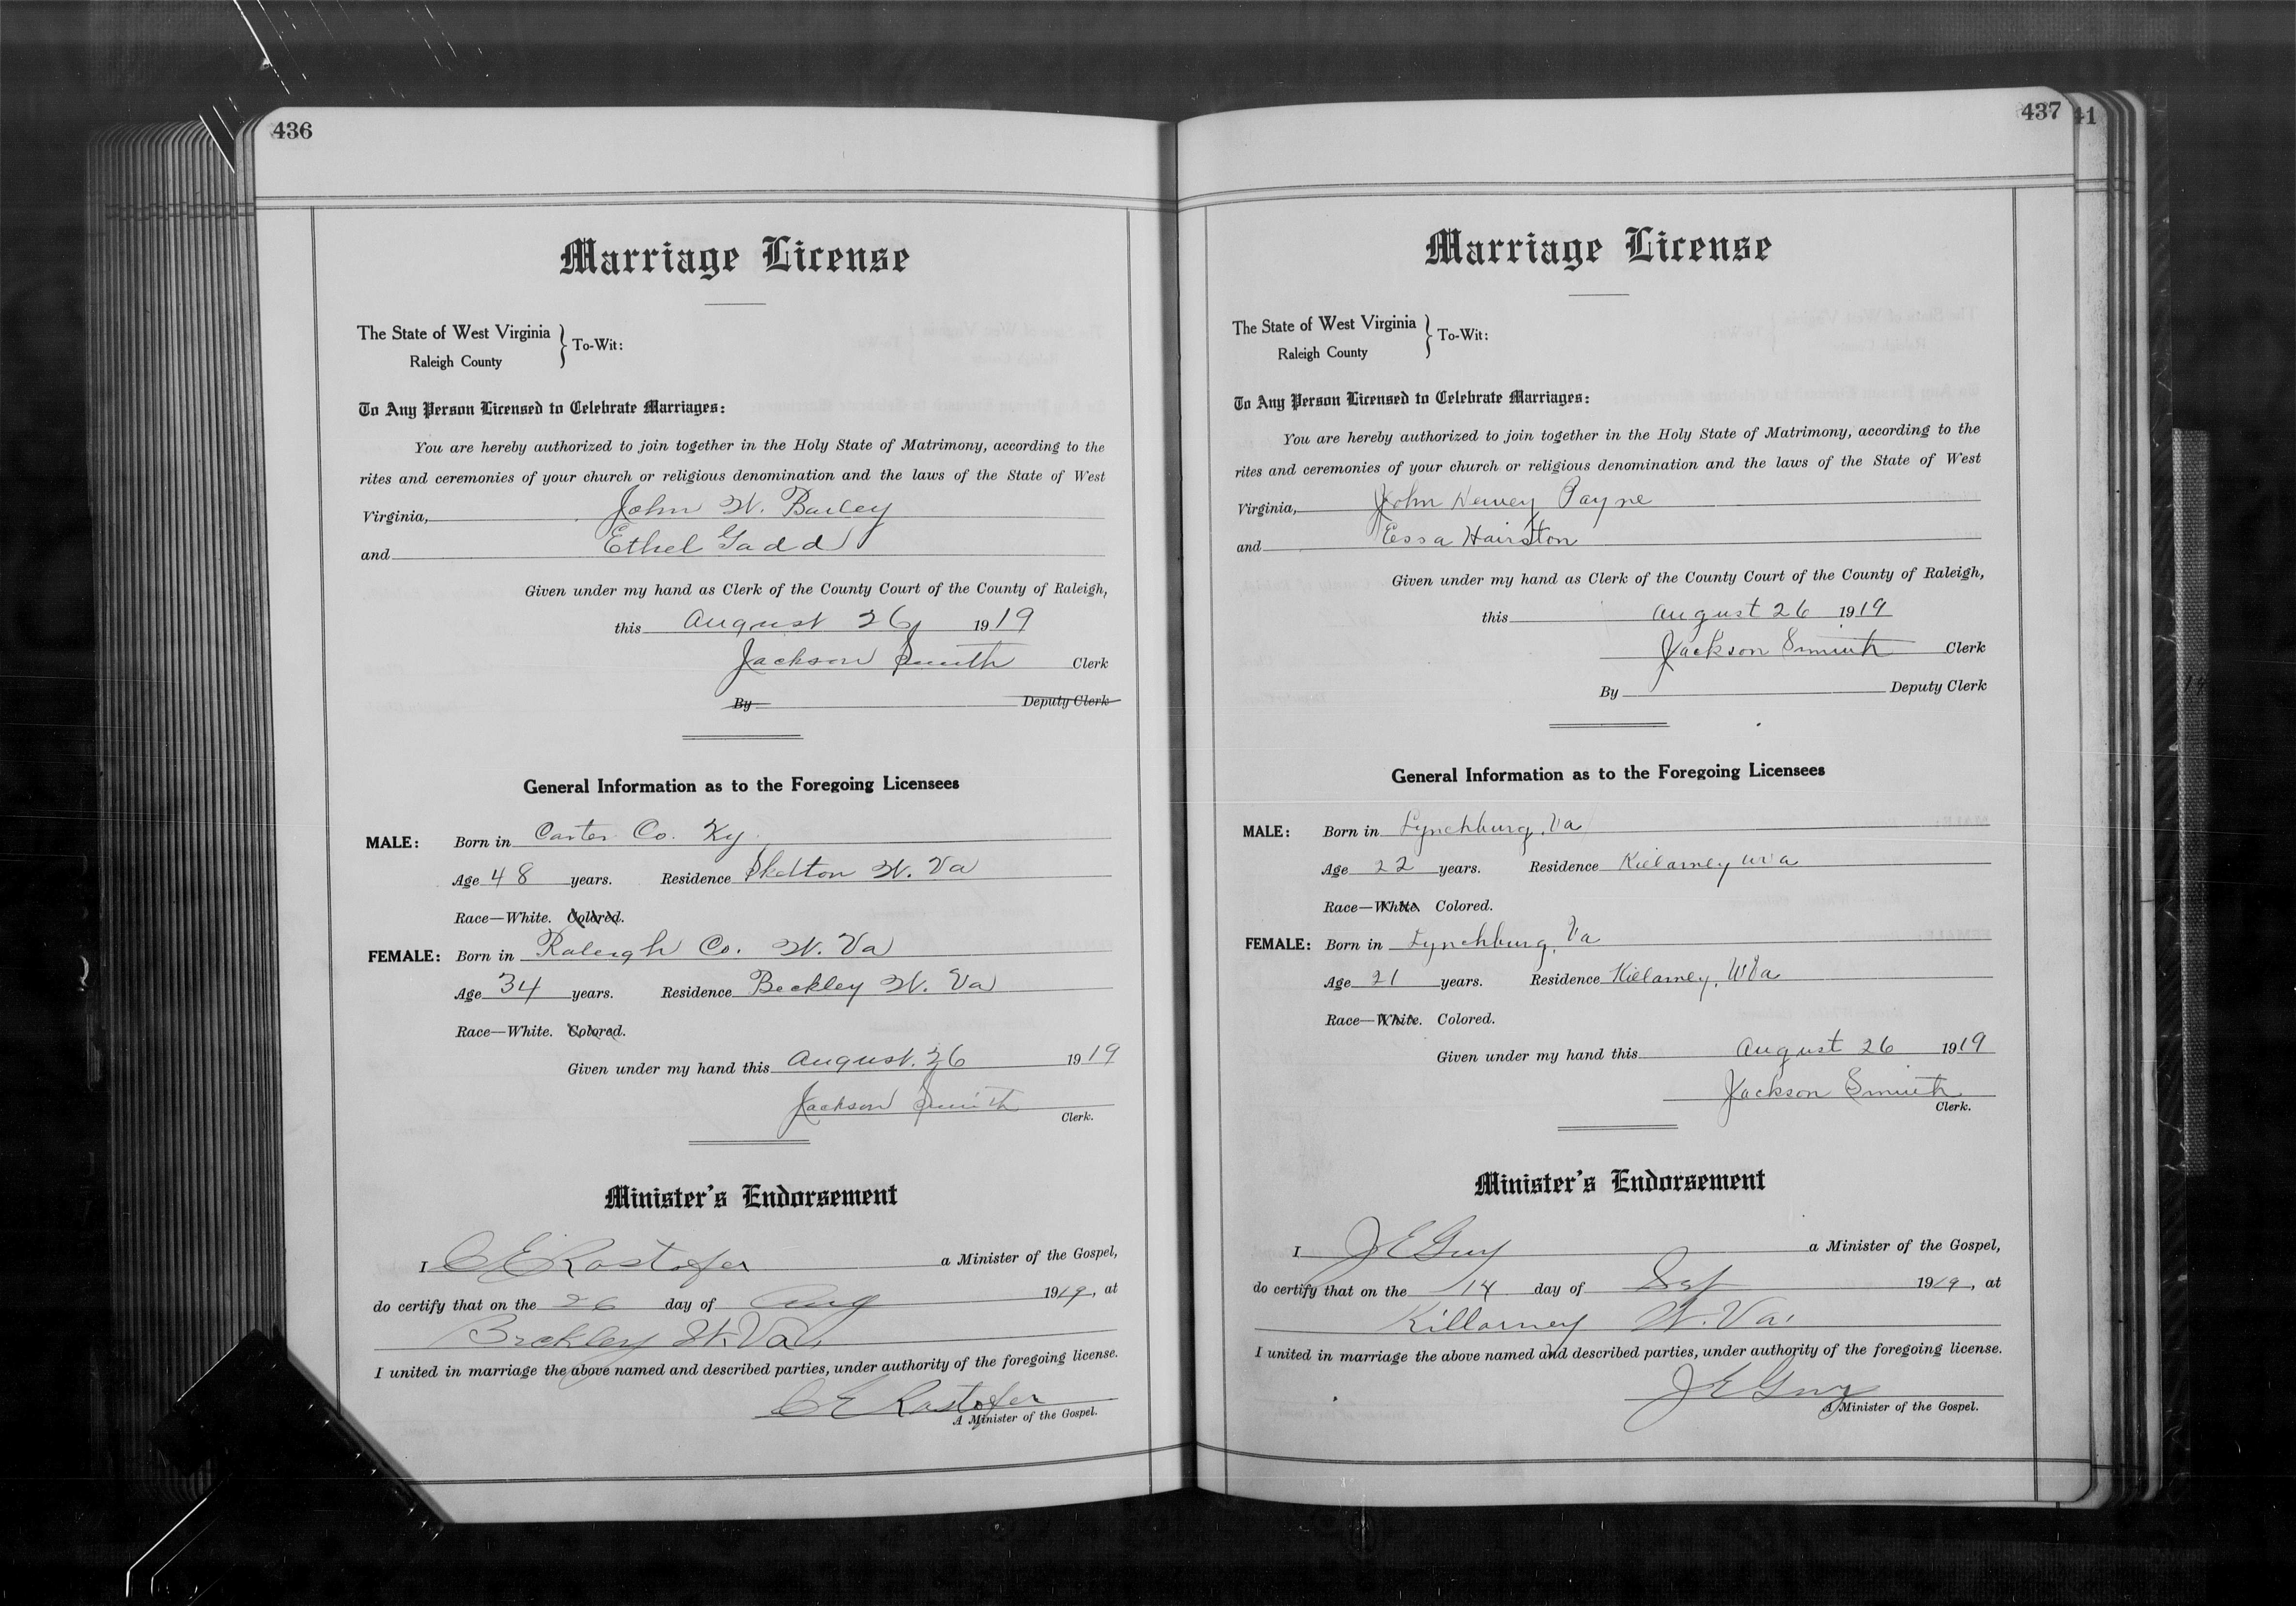 436
Marriage License
The State of West Virginia
Raleigh County
To-Wit:
To Any Person Licensed to Celebrate Marriages:
You are hereby authorized to join together in the Holy State of Matrimony, according to the
rites and ceremonies of your church or religious denomination and the laws of the State of West
Virginia, John W. Bailey
and Ethel Gadd
Given under my hand as Clerk of the County Court of the County of Raleigh,
this August 26, 1919
Jackson Smith Clerk
By Deputy Clerk
General Information as to the Foregoing Licensees
MALE: Born in Carter Co. Ky.
Age 48 years. Residence Skelton W. Va
Race—White. Colored.
FEMALE: Born in Raleigh Co. W. Va
Age 34 years. Residence Beckley W. Va
Race—White. Colored.
Given under my hand this August. 26 1919
Jackson Smith
Clerk.
Minister's Endorsement
I C E Rastofer a Minister of the Gospel,
do certify that on the 26 day of Aug 1919, at
Beckley W. Va.
I united in marriage the above named and described parties, under authority of the foregoing license.
C E Rastofer
A Minister of the Gospel.
437
41
Marriage License
The State of West Virginia
Raleigh County
To-Wit:
To Any Person Licensed to Celebrate Marriages:
You are hereby authorized to join together in the Holy State of Matrimony, according to the
rites and ceremonies of your church or religious denomination and the laws of the State of West
Virginia, John Dewey Payne
and Essa Hairston
Given under my hand as Clerk of the County Court of the County of Raleigh,
this August 26 1919
Jackson Smith Clerk
By Deputy Clerk
General Information as to the Foregoing Licensees
MALE: Born in Lynchburg, Va
Age 22 years. Residence Killarney W Va
Race—White. Colored.
FEMALE: Born in Lynchburg, Va
Age 21 years. Residence Killarney, W Va
Race—White. Colored.
Given under my hand this August 26 1919
Jackson Smith
Clerk.
Minister's Endorsement
I J E Guy a Minister of the Gospel,
do certify that on the 14 day of Sept 1919, at
Killarney W. Va.
I united in marriage the above named and described parties, under authority of the foregoing license.
J E Guy
A Minister of the Gospel.